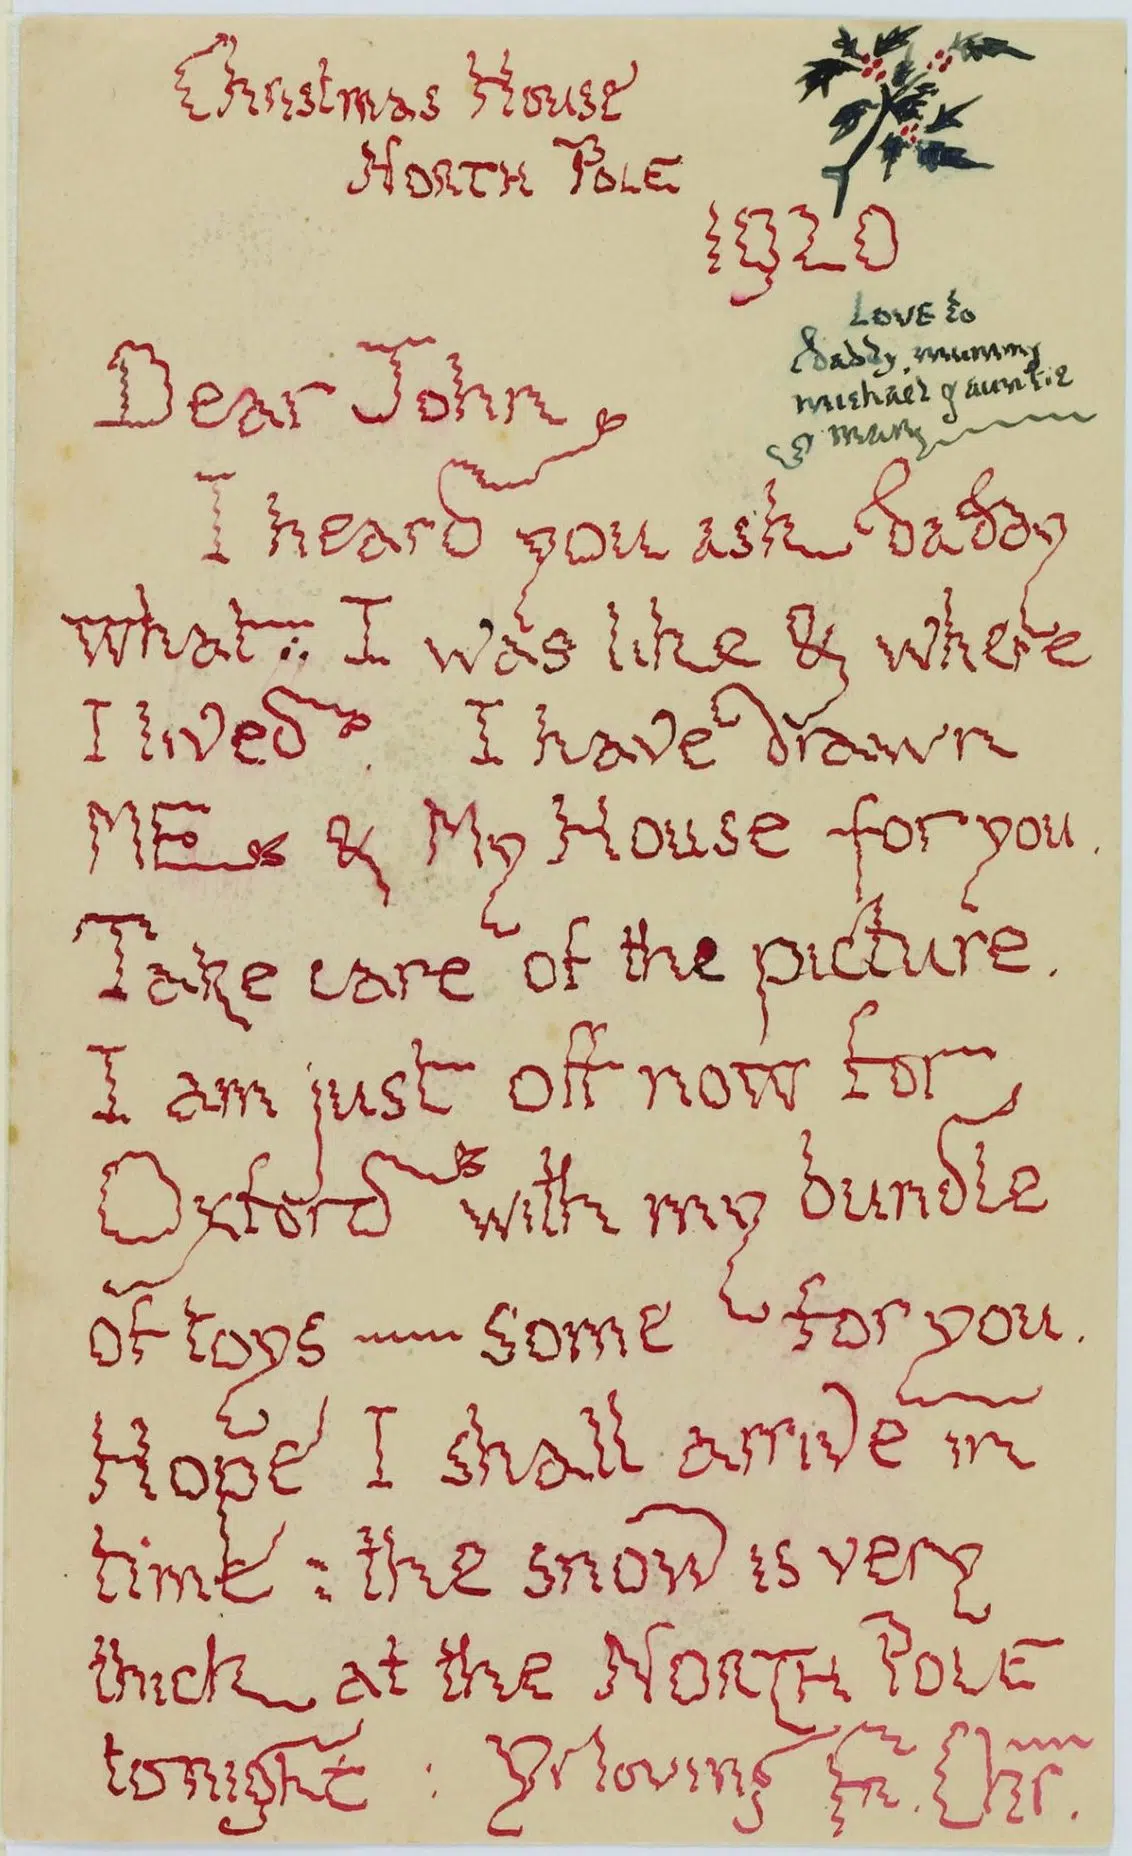 Christmas House
NORTH POLE
1920
Love to
daddy, mummy
michael & auntie
mary
Dear John,
I heard you ask daddy
what I was like & where
I lived. I have drawn
ME & My House for you.
Take care of the picture.
I am just off now for
Oxford with my bundle
of toys — some for you.
Hope I shall arrive in
time: the snow is very
thick at the NORTH POLE
tonight: Yr loving Fr. Chr.